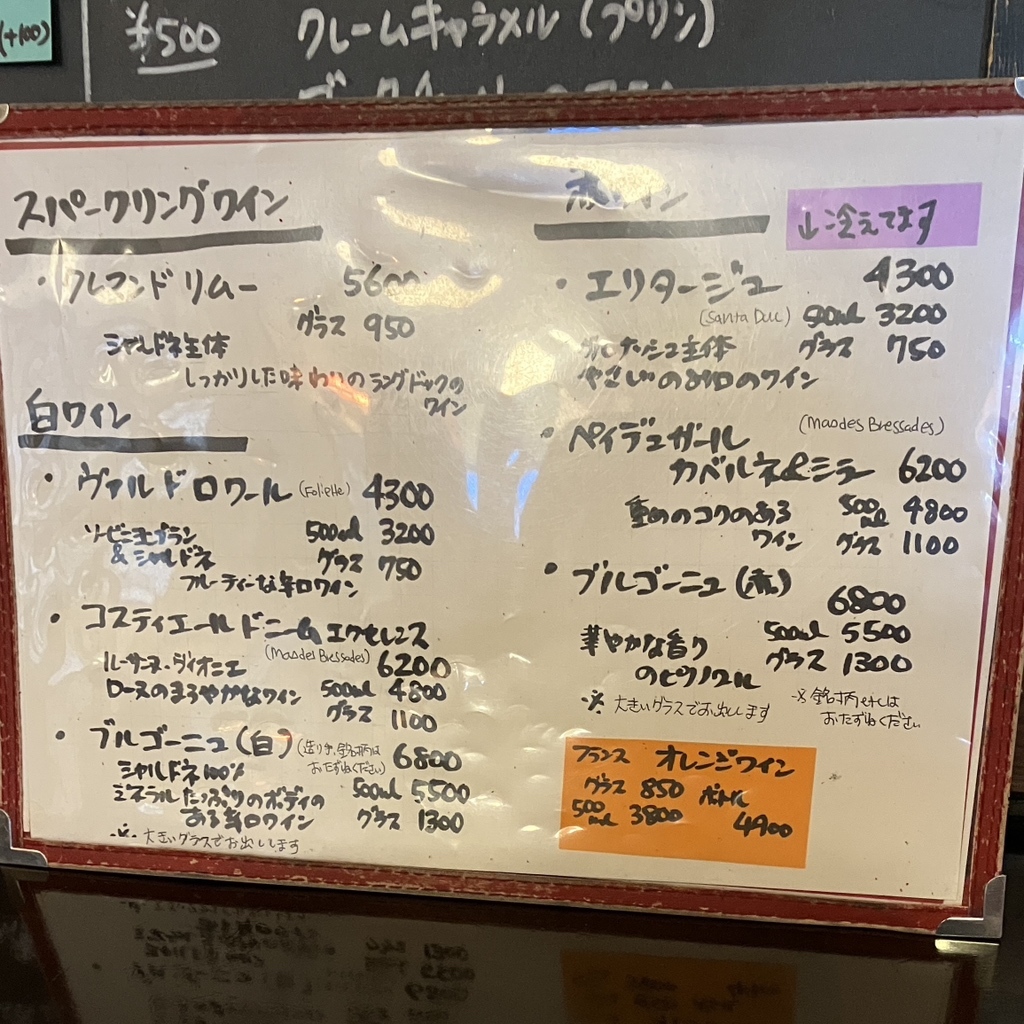 (+100)
¥500 クレームキャラメル(プリン)
スパークリングワイン
・クレマンド リムー 5600
グラス 950
シャルドネ主体
しっかりした味わいのラングドックの
ワイン
白ワイン
・ヴァルドロワール (Foliette) 4300
ソービニヨンブラン 500ml 3200
&シャルドネ グラス 750
フルーティーな辛口ワイン
・コスティエールドニーム エクセレンス
(Masdes Bressades)
ルーサンヌ・ヴィオニエ 6200
ロースのまろやかなワイン 500ml 4800
グラス 1100
・ブルゴーニュ(白) (造り手、銘柄は
おたずねください) 6800
シャルドネ100%
ミネラルたっぷりのボディの 500ml 5500
ある辛口ワイン グラス 1300
※大きいグラスでお出しします
赤ワイン
↓冷えてます
・エリタージュ 4300
(Santa Duc) 500ml 3200
グルナッシュ主体 グラス 750
やさしいのみ口のワイン
・ペイデュガール (Masdes Bressades)
カベルネ&シラー 6200
重めのコクのある 500ml 4800
ワイン グラス 1100
・ブルゴーニュ(赤)
6800
華やかな香り 500ml 5500
のピノノワル グラス 1300
※大きいグラスでお出しします
※銘柄etcは
おたずねください
フランス オレンジワイン
グラス 850 ボトル
500ml 3800 4900